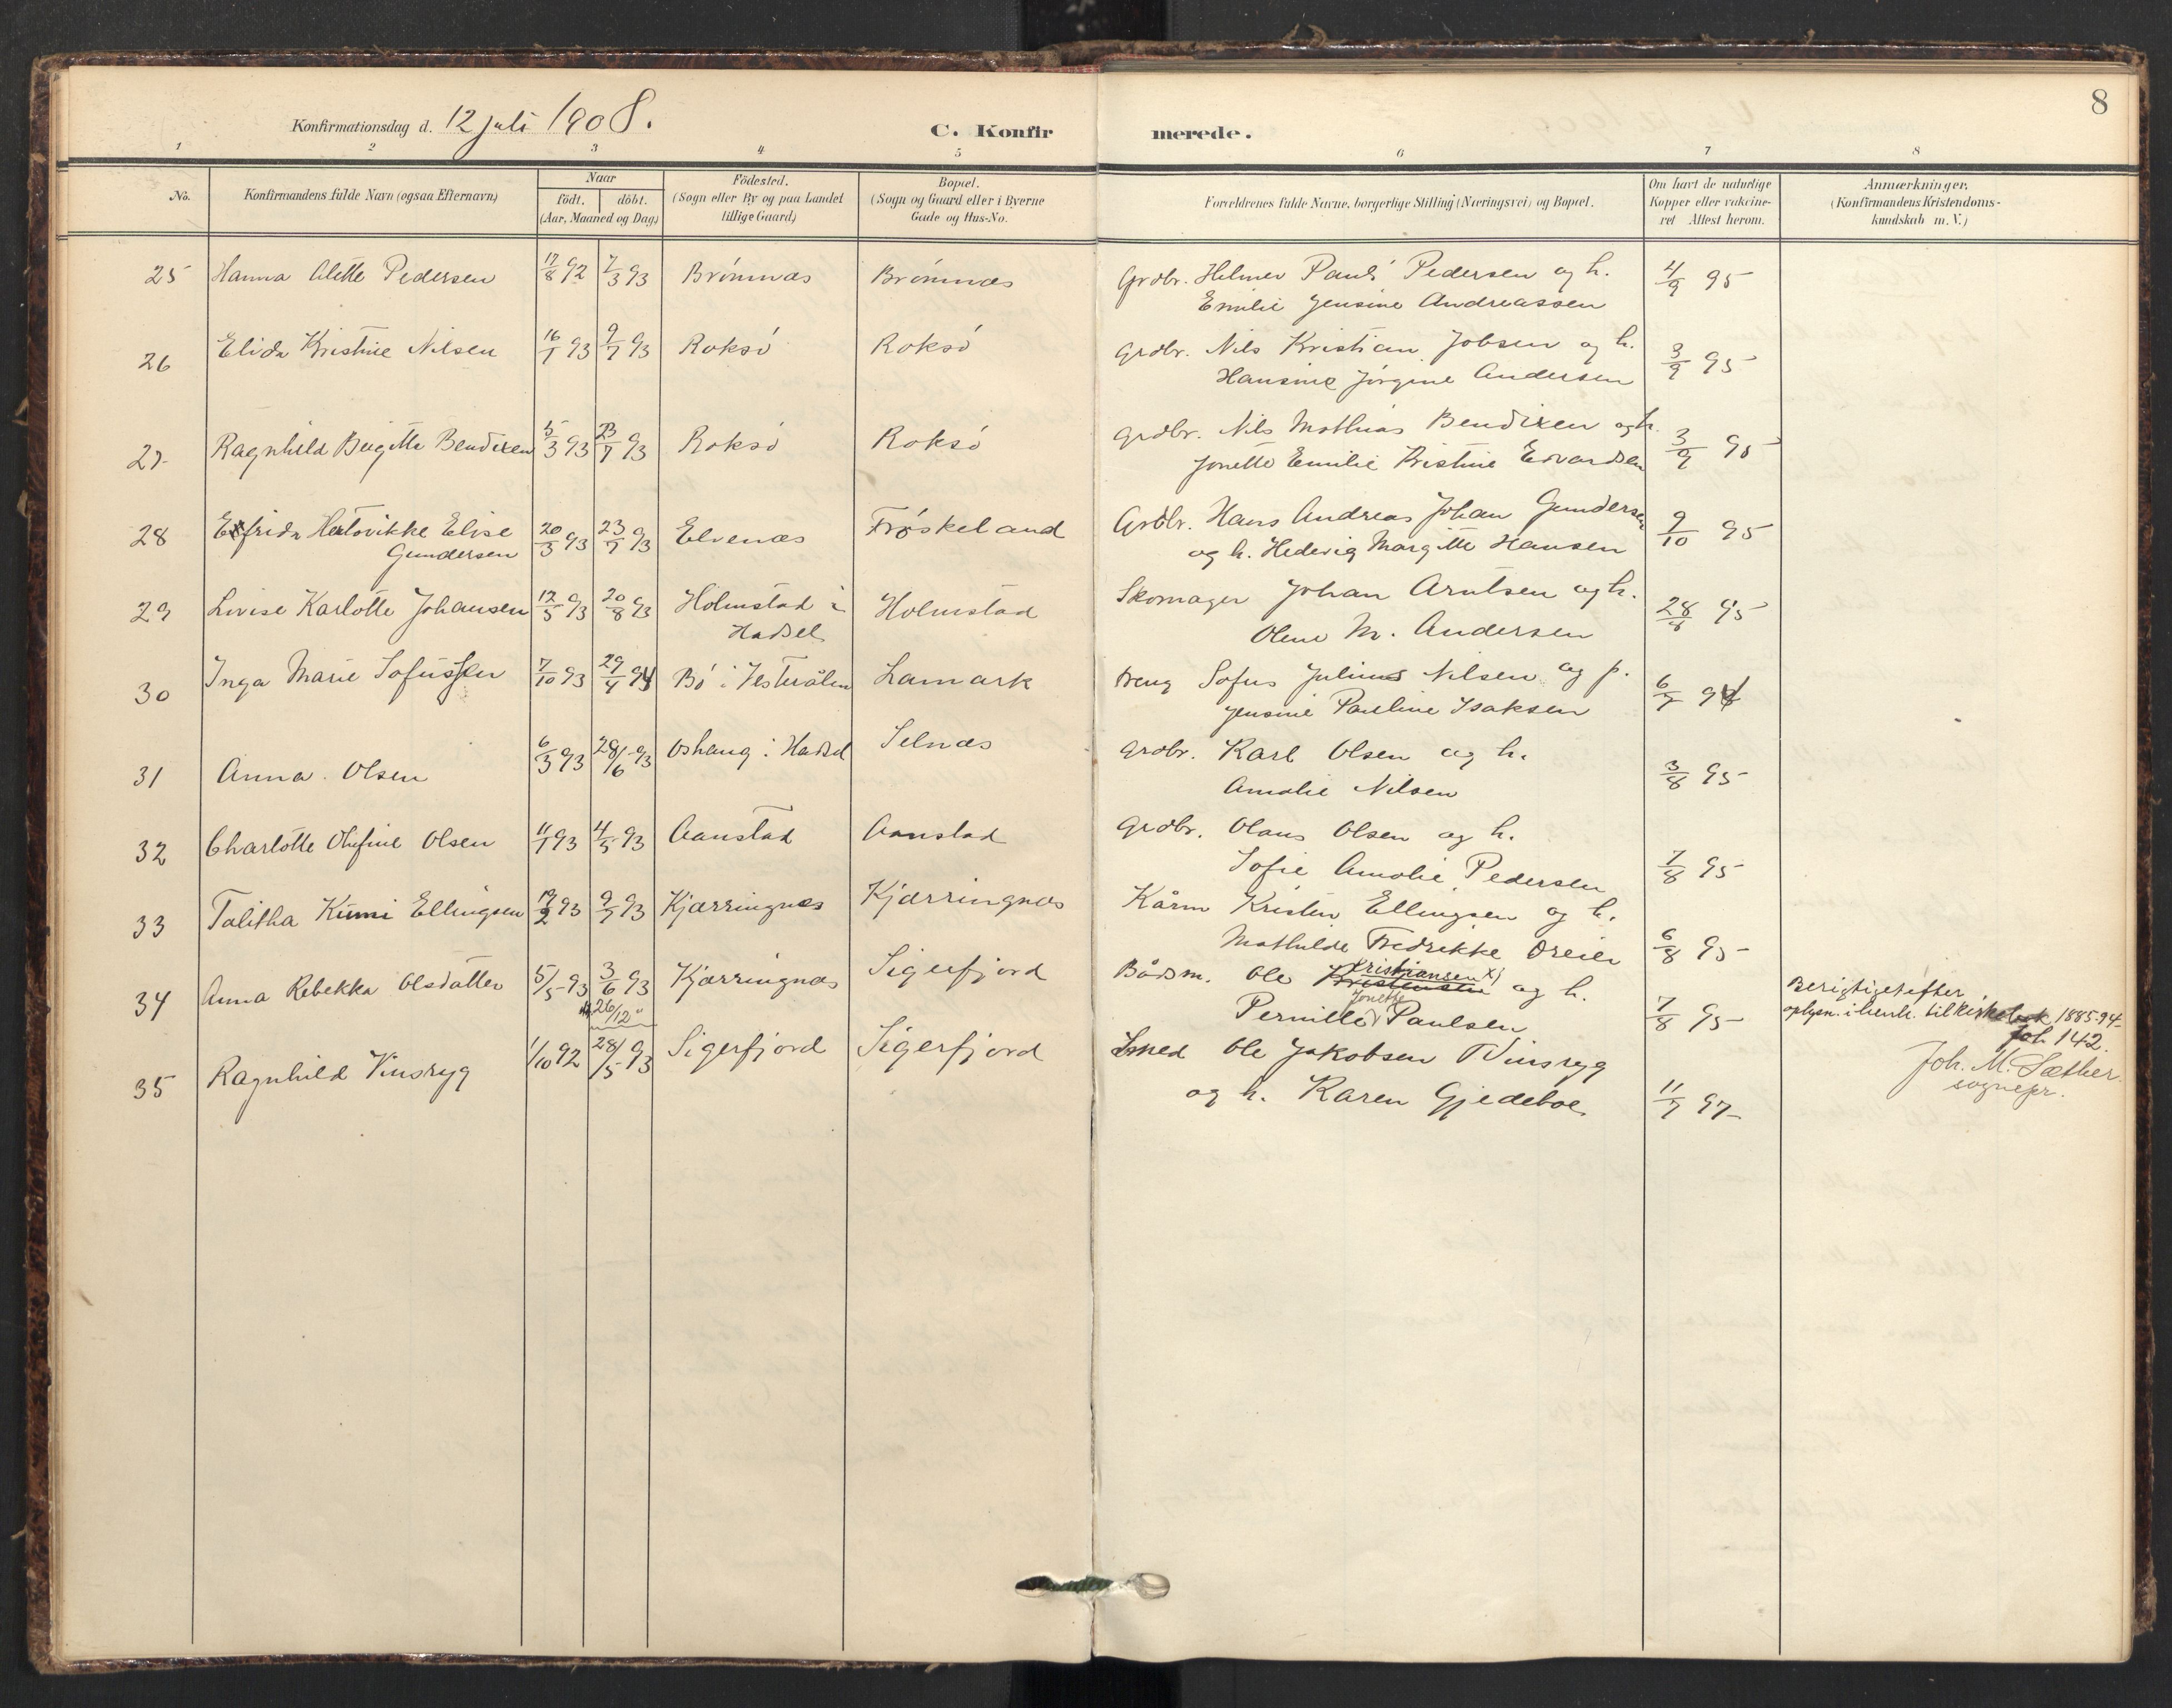 8
Konfirmationsdag d. 12 juli 1908.
C. Konfirmerede.
1 2 3 4 5 6 7 8
No.
Konfirmandens fulde Navn (ogsaa Efternavn)
Naar
födt. döbt.
(Aar, Maaned og Dag)
Födested.
(Sogn eller By og paa Landet
tillige Gaard)
Bopæl.
(Sogn og Gaard eller i Byerne
Gade og Hus-No.
Forældrenes fulde Navne, borgerlige Stilling (Næringsvei) og Bopæl.
Om havt de naturlige
Kopper eller vakcine-
ret Attest herom.
Anmærkninger.
(Konfirmandens Kristendoms-
kundskab m. V.)
25 Hanna Alette Pedersen 17/8 92 7/3 93 Brömnæs Brömnæs Grdbr. Helmer Pauli Pedersen og h. 4/9 95
Emilie Jensine Andreassen
26 Elida Kristine Nilsen 16/1 93 9/7 93 Roksö Roksö Grdbr. Nils Kristian Jobsen og h. 3/9 95
Hansine Jörgine Andersen
27 Ragnhild Birgitte Bendixen 5/3 93 23/7 93 Roksö Roksö Grdbr. Nils Mathias Bendixen og h. 3/9 95
Jonette Emilie Kristine Edvardsen
28 Elfrida Hartvikke Elise 20/3 93 23/7 93 Elvenæs Frøskeland Grdbr. Hans Andreas Johan Gundersen 9/10 95
Gundersen og h. Hedevig Margitte Hansen
29 Lovise Karlotte Johansen 12/5 93 20/8 93 Holmstad i Holmstad Skomager Johan Arntsen og h. 28/8 95
Hadsel Oline M. Andersen
30 Inga Marie Sofussen 7/10 93 29/4 94 Bö i Vesterålen Lamark Dreng Sofus Julius Nilsen og p. 6/7 94
Jensine Pauline Isaksen
31 Anna Olsen 6/3 93 28/6 93 Oshaug i Hadsel Selnæs Grdbr. Karl Olsen og h. 3/8 95
Amalie Nilsen
32 Charlotte Olufine Olsen 11/1 93 4/5 93 Aanstad Aanstad Grdbr. Olaus Olsen og h. 7/8 95
Sofie Amalie Pedersen
33 Talitha Kumi Ellingsen 19/2 93 9/7 93 Kjærringnes Kjærringnes Kårm Kristen Ellingsen og h. 6/8 95
Mathilde Fredrikke Dreier
34 Anna Rebekka Olsdatter 5/5 93 3/6 93 Kjærringnes Sigerfjord Bådsm. Ole Kristensen Kristiansen x) og h. 7/8 95
26/12 Pernille Jonette Paulsen
Berigtiget efter
oplysn. i henh. til kirkebok 1885-94
fol. 142.
Joh. M. Sæther
sognepr.
35 Ragnhild Vinsryg 1/10 92 28/5 93 Sigerfjord Sigerfjord Smed Ole Jakobsen Vinsryg 11/7 97
og h. Karen Gjedeboe